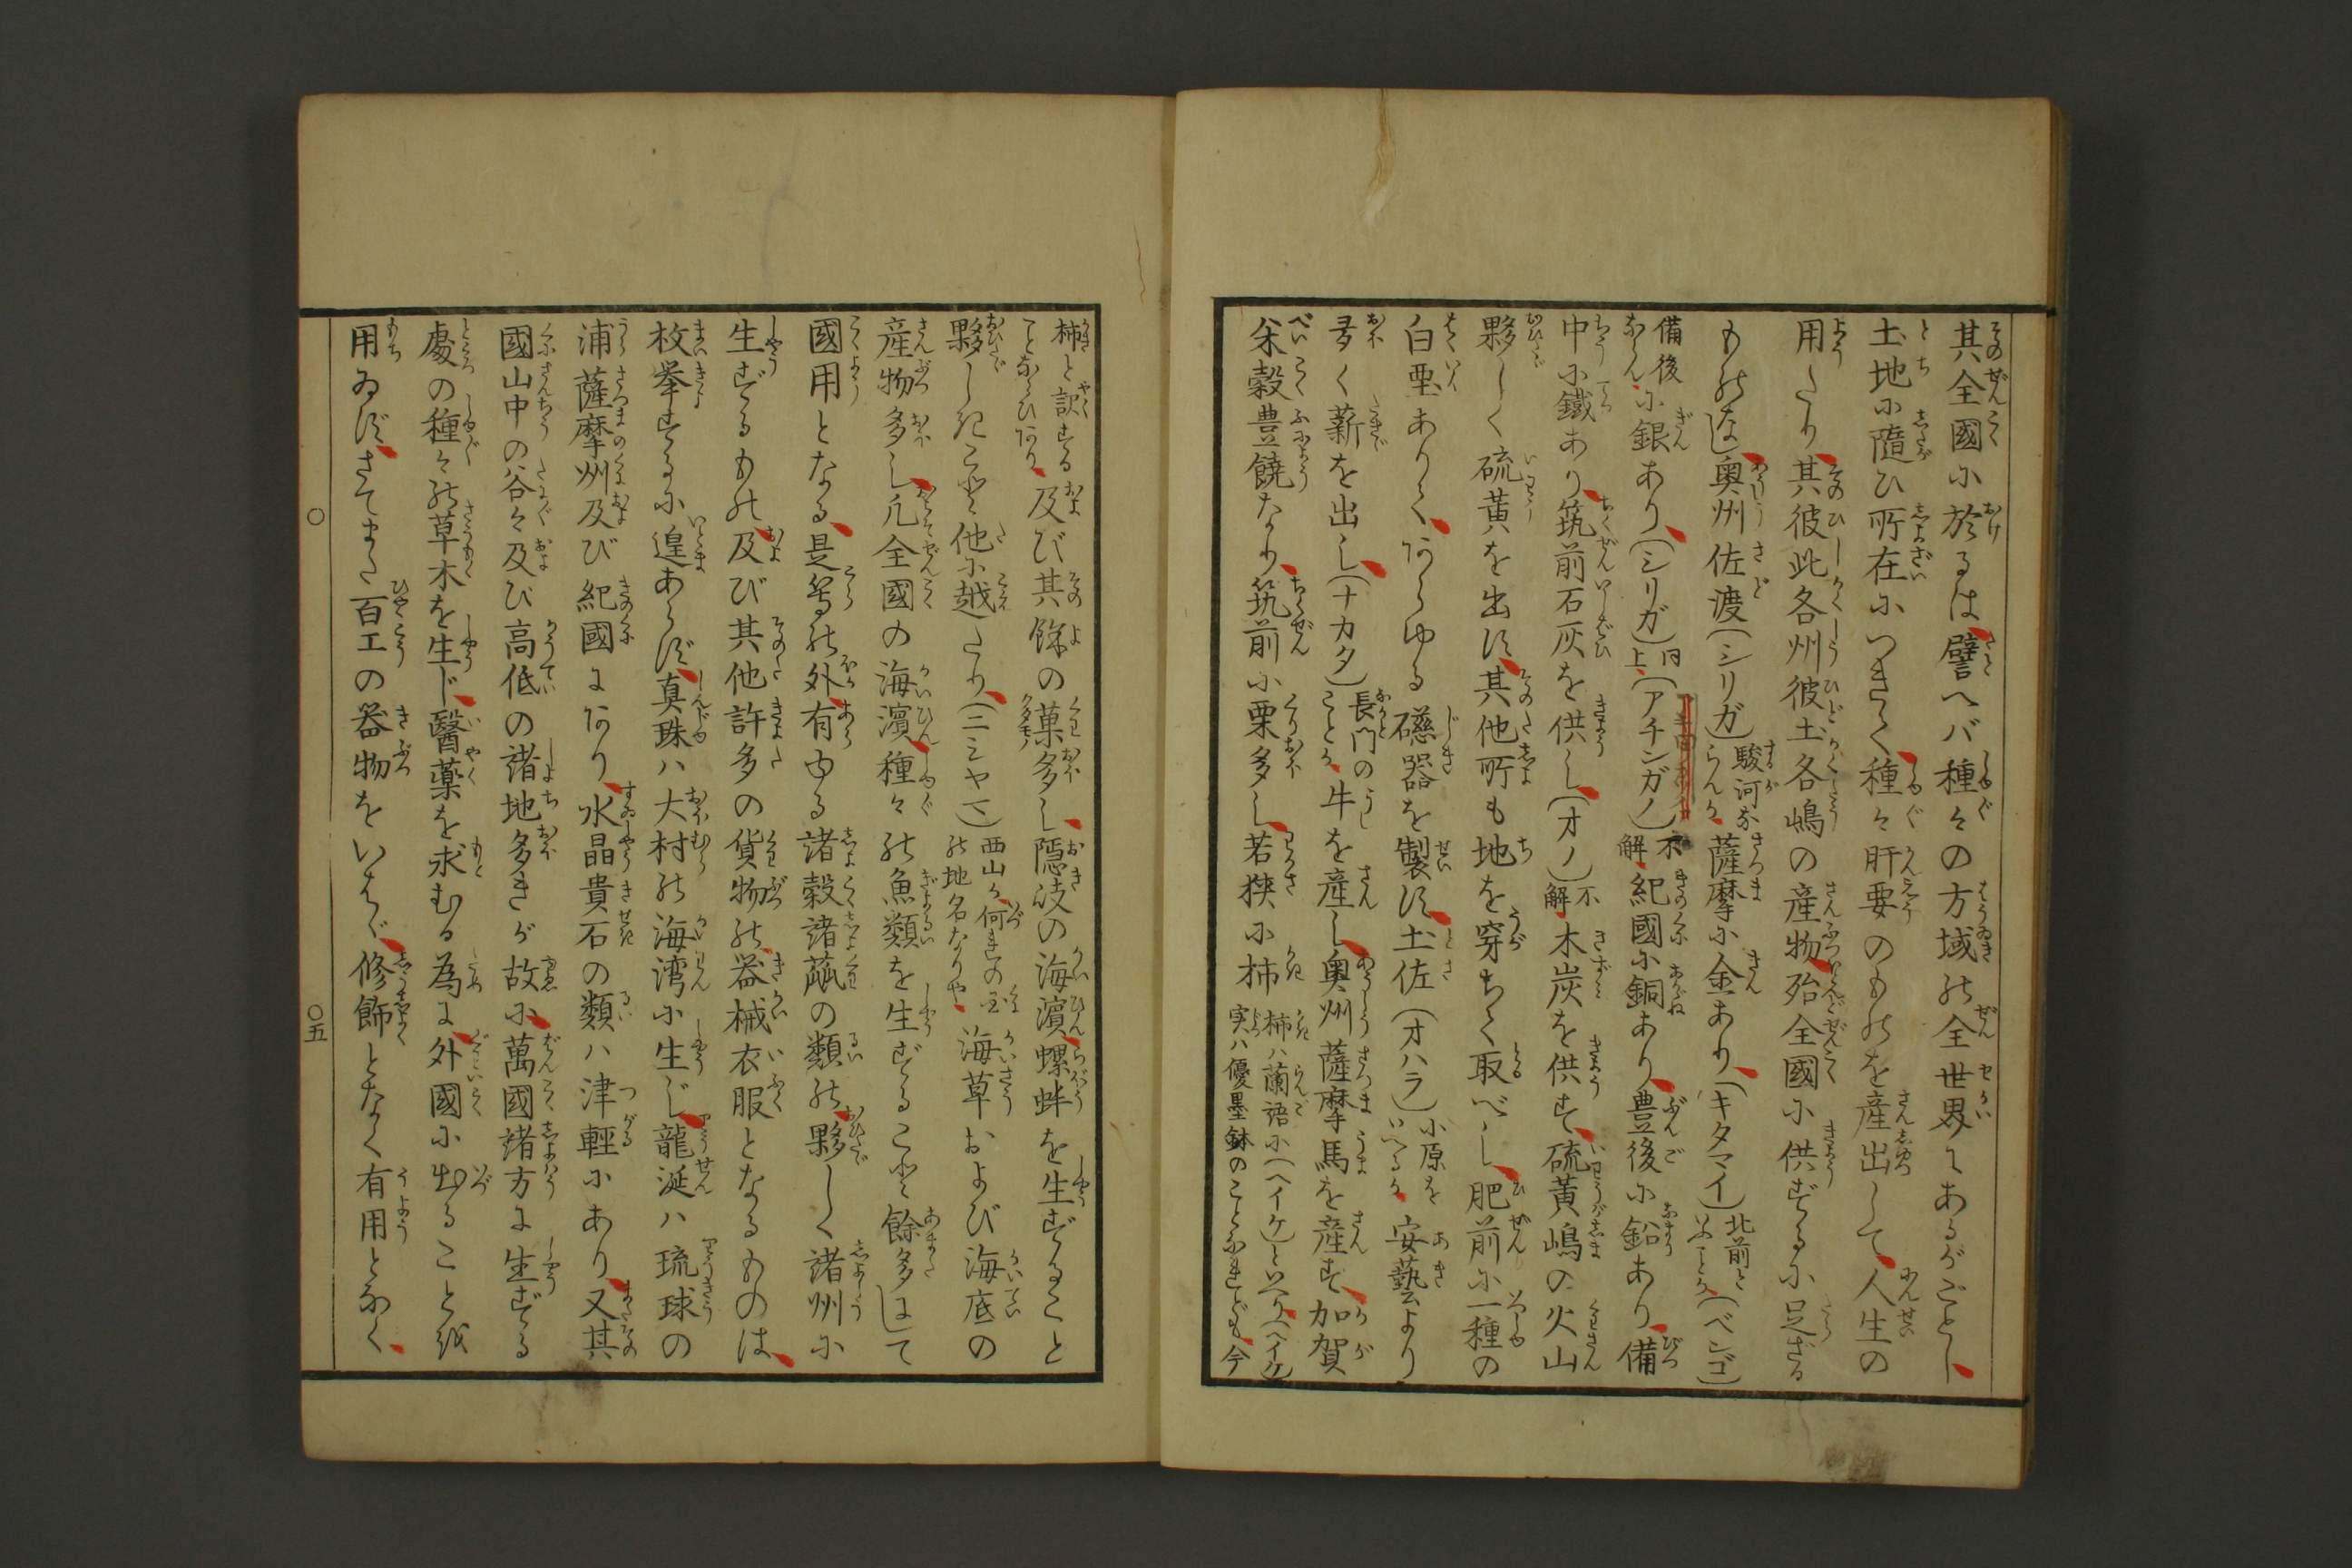 其全國に於るは譬へバ種々の方域の全世界にあるがごとし
土地に隨ひ所在につきて種々肝要のものを産出して人生の
用たり其彼此各州彼土各嶋の産物殆全國に供ずるに足ざる
ものなし奥州佐渡(シリガ)駿河ならんか薩摩に金あり(キタマイ)北前といふことか(ベンゴ)
備後ならんに銀あり(シリガ)同上(アチンガノ)不解紀國に銅あり豊後に鉛あり備
中に鐵あり筑前石灰を供し(オノ)不解木炭を供す硫黄嶋の火山
夥しく硫黄を出す其他所も地を穿ちて取べし肥前に一種の
白堊ありてあらゆる礠器を製す土佐(オハラ)小原をいへるか安藝より
多く薪を出し(ナカタ)長門のことか牛を産し奥州薩摩馬を産す加賀
米穀豊饒なり筑前に栗多し若狭に柿柿ハ蘭語に(ヘイケ)といへり(ヘイケ)実ハ優曇鉢のことなれども今
柿と訳することならひなり及び其餘の菓多し隠岐の海濵螺蚌を生ずること
夥しきこと他に越たり(ニシヤマ)西山か何れの国の地名なりや海草および海底の
産物多し凡全國の海濵種々の魚類を生ずること餘多にして
國用となる是等の外有ゆる諸穀諸蓏の類の夥しく諸州に
生ずるもの及び其他許多の貨物の器械衣服となるものは
枚挙するに遑あらず真珠ハ大村の海湾に生じ龍涎ハ琉球の
浦薩摩州及び紀國にあり水晶貴石の類ハ津輕にあり又其
國山中の谷々及び高低の諸地多きが故に萬國諸方に生ずる
處の種々の草木を生ド醫薬を求むる為に外國に出ることを
用ゐず さてまた百工の器物をいはゞ修飾となく有用となく
〇五